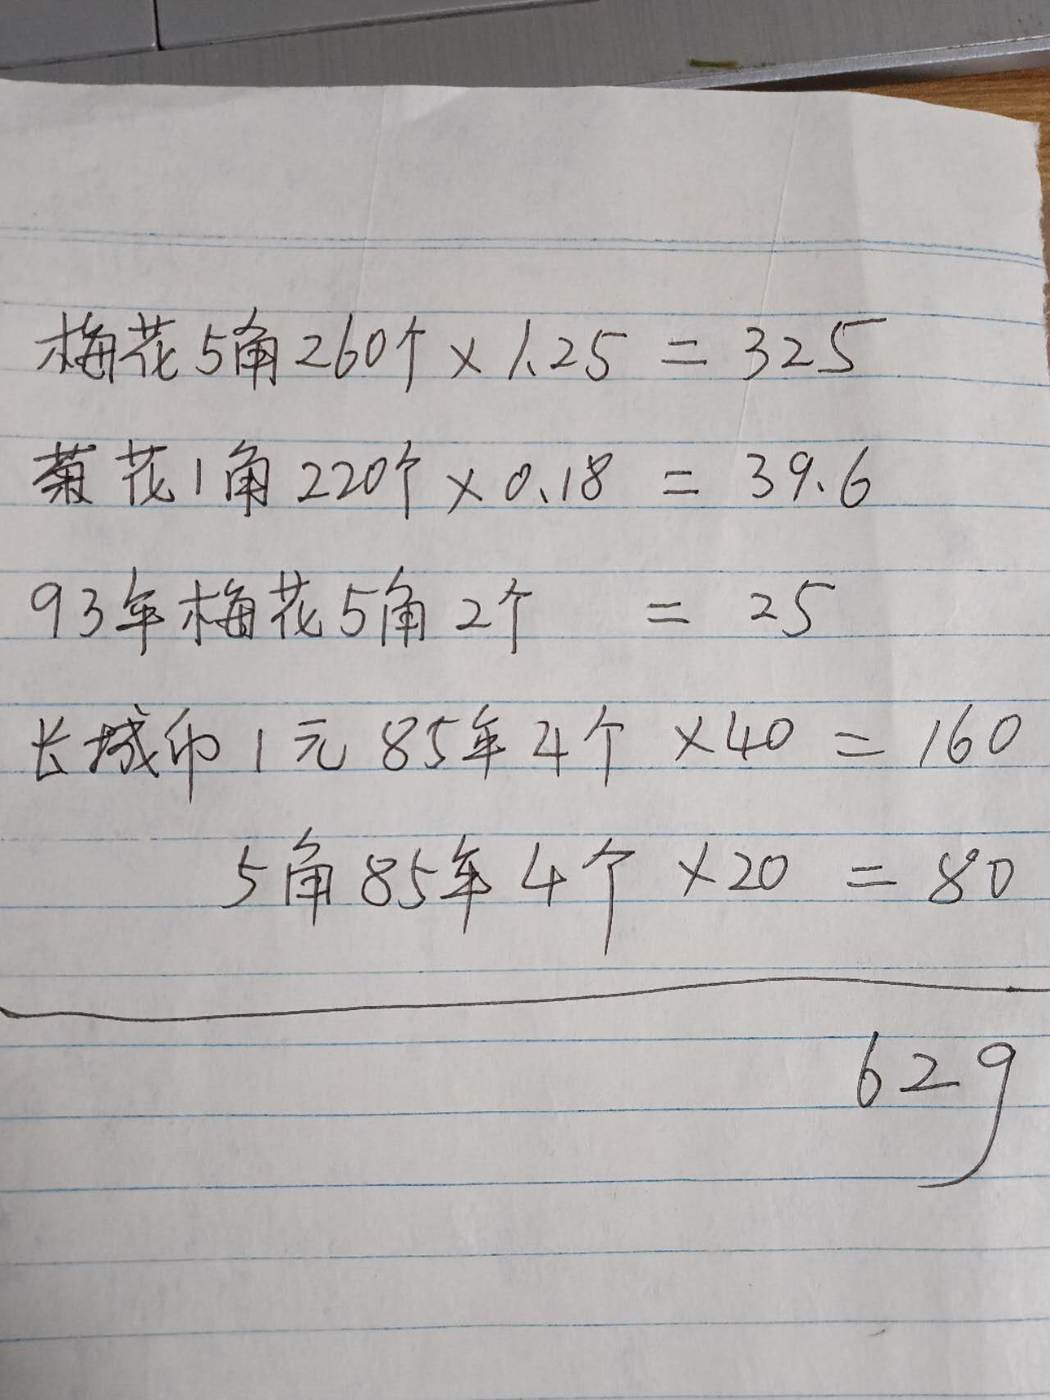 梅花5角260个×1.25=325
菊花1角220个×0.18=39.6
93年梅花5角2个 =25
长城币1元85年4个×40=160
5角85年4个×20=80
629